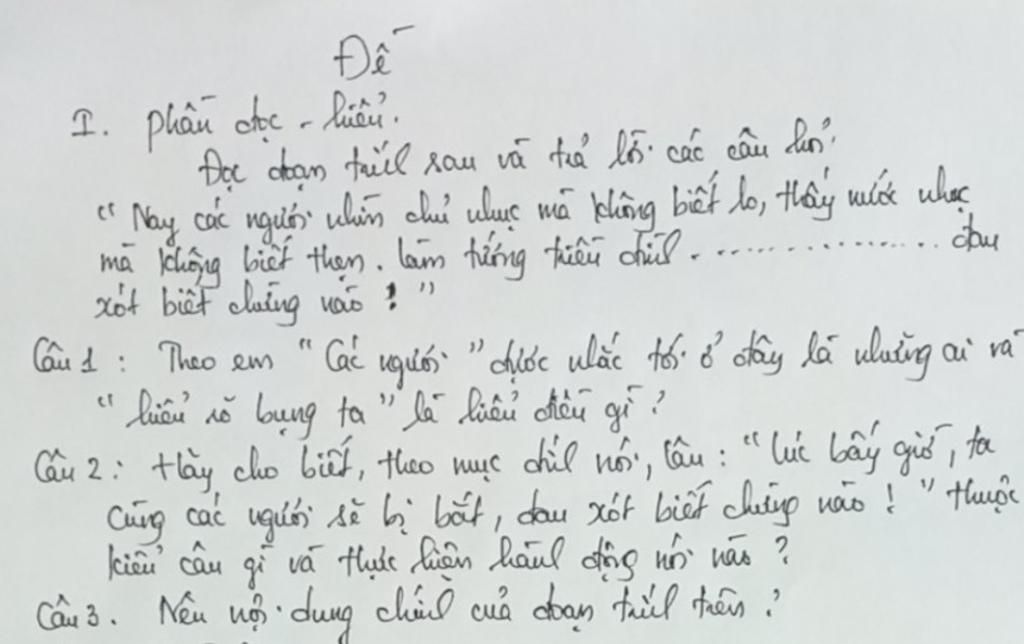 Đề
I. phần đọc - hiểu.
Đọc đoạn trích sau và trả lời các câu hỏi.
"Nay các ngươi nhìn chủ nhục mà không biết lo, thấy nước nhục
mà không biết thẹn. làm tướng triều đình . ................ đau
xót biết chừng nào ! "
Câu 1 : Theo em "Các ngươi" được nhắc tới ở đây là những ai và
"hiểu rõ bụng ta" là hiểu điều gì ?
Câu 2 : Hãy cho biết, theo mục đích nói, câu : "lúc bấy giờ, ta
cùng các ngươi sẽ bị bắt, đau xót biết chừng nào ! " thuộc
kiểu câu gì và thực hiện hành động nói nào ?
Câu 3 . Nêu nội dung chính của đoạn trích trên ?